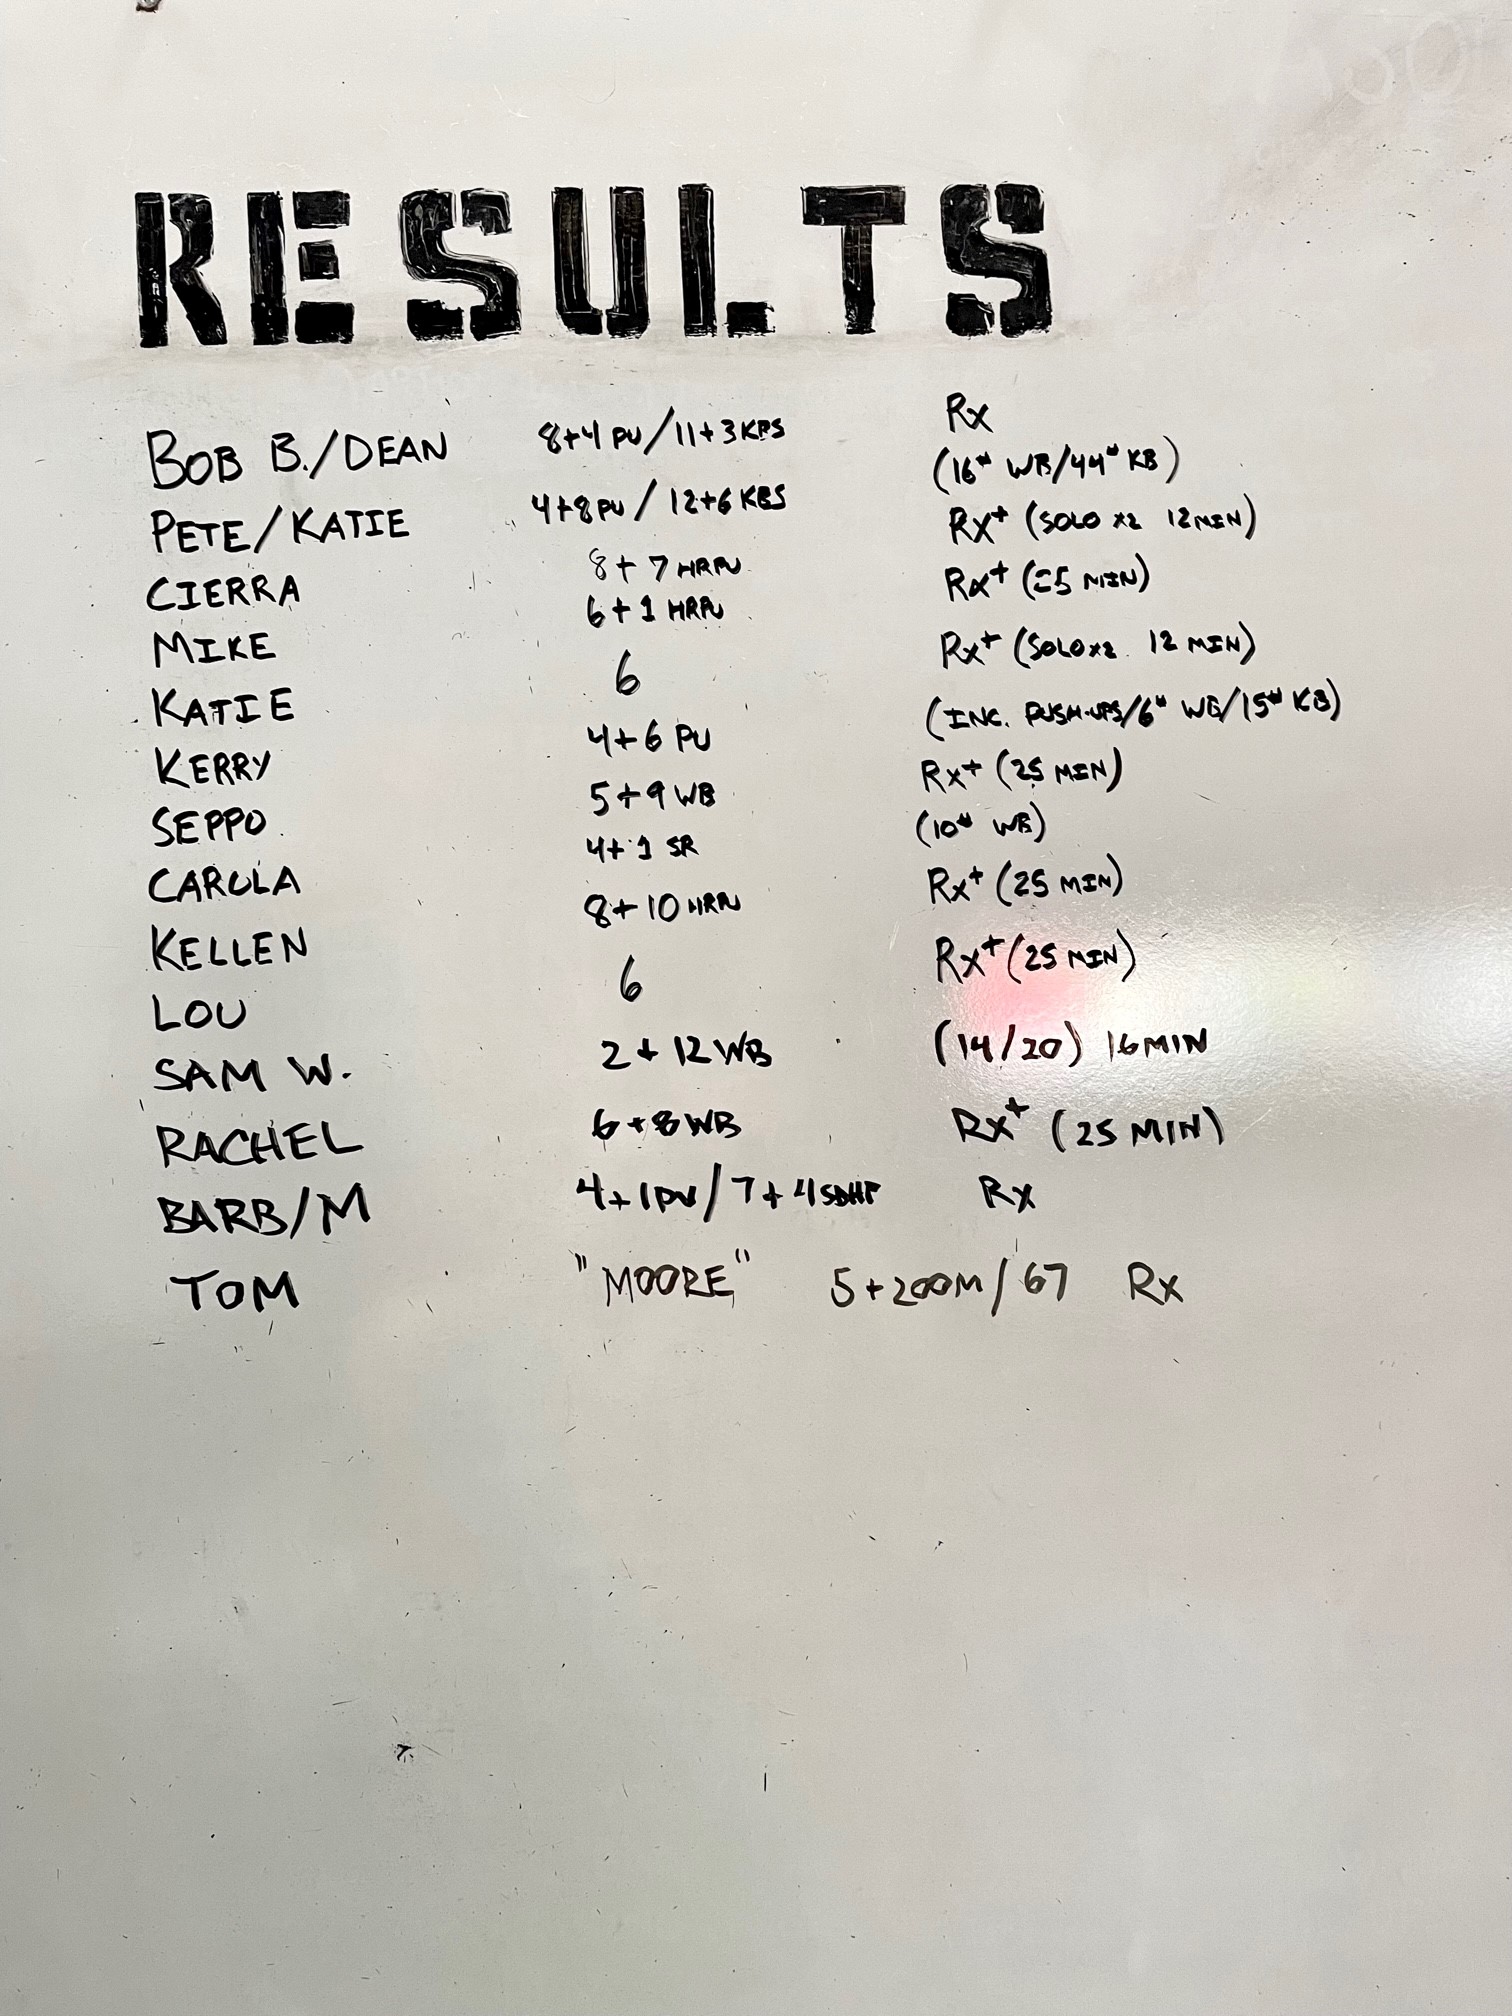 RESULTS
BOB B./DEAN 8+4 PU/11+3 KBS Rx
PETE/KATIE 4+8 PU/12+6 KBS (16# WB/44# KB)
CIERRA 8+7 HRPU Rx+ (SOLO x2 12 MIN)
MIKE 6+1 HRPU Rx+ (25 MIN)
KATIE 6 Rx+ (SOLO x2 12 MIN)
KERRY 4+6 PU (INC. PUSH-UPS/6# WB/15# KB)
SEPPO 5+9 WB Rx+ (25 MIN)
CAROLA 4+1 SR (10# WB)
KELLEN 8+10 HRPU Rx+ (25 MIN)
LOU 6 Rx+ (25 MIN)
SAM W. 2+12 WB (14/20) 16 MIN
RACHEL 6+8 WB Rx+ (25 MIN)
BARB/M 4+1 PU/7+4 SDHP Rx
TOM "MOORE" 5+200M/67 Rx